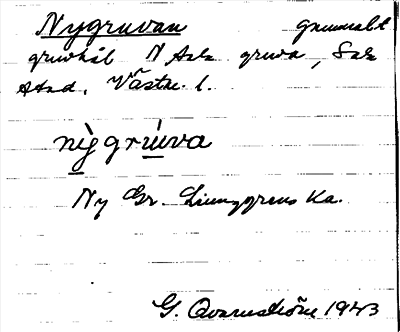 Nygruvan gammalt
gruvhål N Sala gruva, Sala
stad. Västm. l.
nỳggrúva
Ny Gr. Ljunggrens Ka.
G. Qvarnström 1943